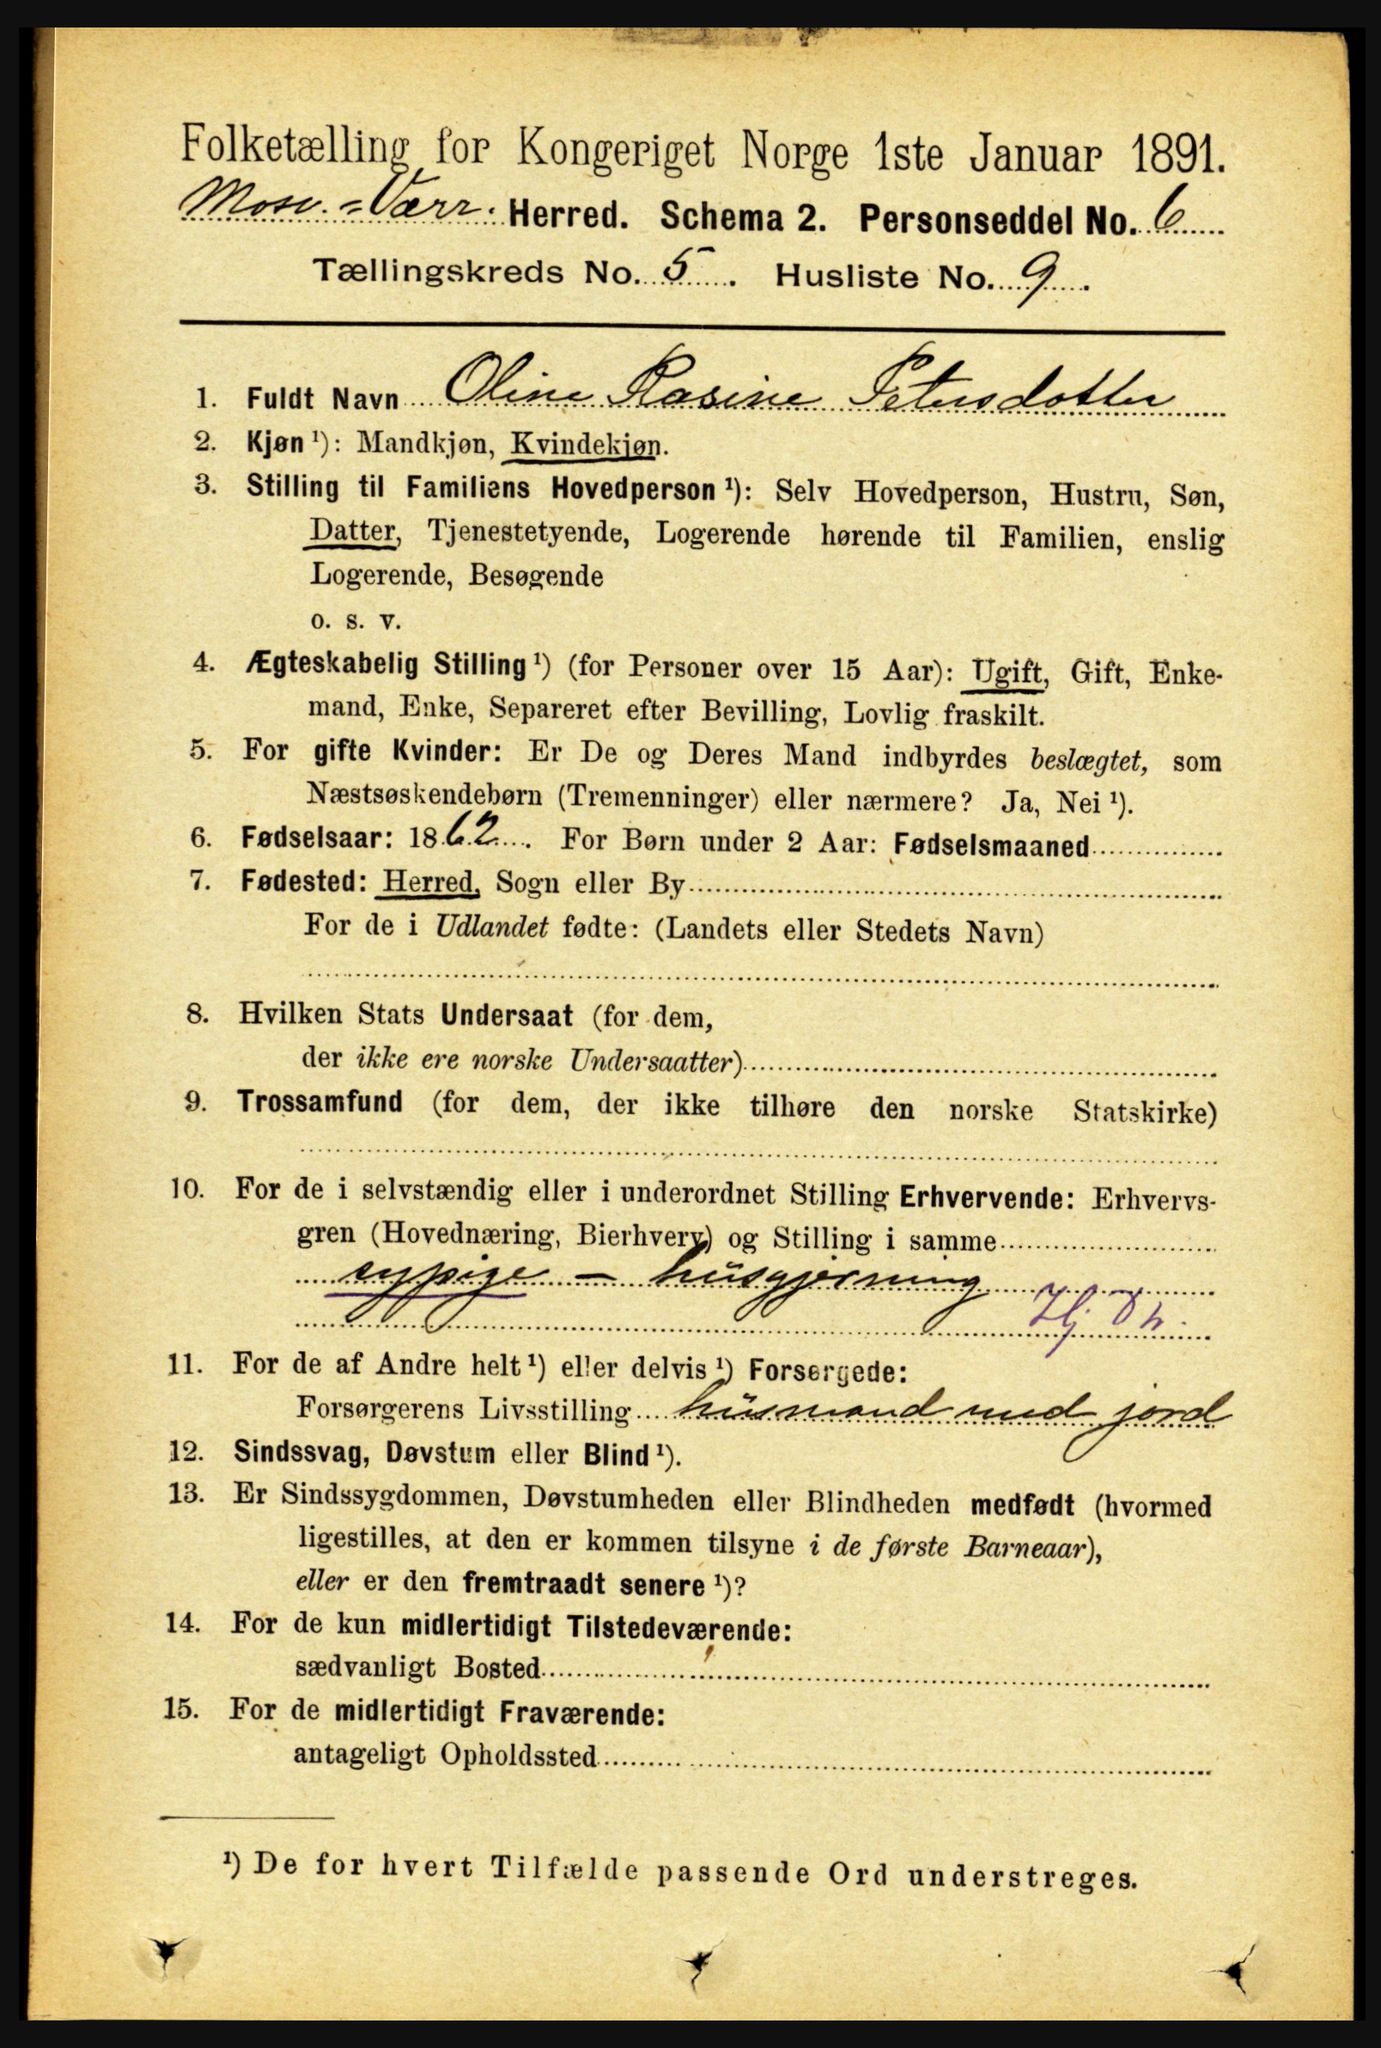 Folketælling for Kongeriget Norge 1ste Januar 1891.
Mosv.=Værr. Herred. Schema 2. Personseddel No. 6
Tællingskreds No. 5. Husliste No. 9.
1. Fuldt Navn Oline Rasine Petersdotter
2. Kjøn ¹): Mandkjøn, Kvindekjøn.
3. Stilling til Familiens Hovedperson ¹): Selv Hovedperson, Hustru, Søn,
Datter, Tjenestetyende, Logerende hørende til Familien, enslig
Logerende, Besøgende
o. s. v.
4. Ægteskabelig Stilling ¹) (for Personer over 15 Aar): Ugift, Gift, Enke-
mand, Enke, Separeret efter Bevilling, Lovlig fraskilt.
5. For gifte Kvinder: Er De og Deres Mand indbyrdes beslægtet, som
Næstsøskendebørn (Tremenninger) eller nærmere? Ja, Nei ¹).
6. Fødselsaar: 1862. For Børn under 2 Aar: Fødselsmaaned
7. Fødested: Herred, Sogn eller By
For de i Udlandet fødte: (Landets eller Stedets Navn)
8. Hvilken Stats Undersaat (for dem,
der ikke ere norske Undersaatter)
9. Trossamfund (for dem, der ikke tilhøre den norske Statskirke)
10. For de i selvstændig eller i underordnet Stilling Erhvervende: Erhvervs-
gren (Hovednæring, Bierhverv) og Stilling i samme
sypige – husgjerning
Hj
11. For de af Andre helt ¹) eller delvis ¹) Forsørgede:
Forsørgerens Livsstilling husmand med jord
12. Sindssvag, Døvstum eller Blind ¹).
13. Er Sindssygdommen, Døvstumheden eller Blindheden medfødt (hvormed
ligestilles, at den er kommen tilsyne i de første Barneaar),
eller er den fremtraadt senere ¹)?
14. For de kun midlertidigt Tilstedeværende:
sædvanligt Bosted
15. For de midlertidigt Fraværende:
antageligt Opholdssted
¹) De for hvert Tilfælde passende Ord understreges.